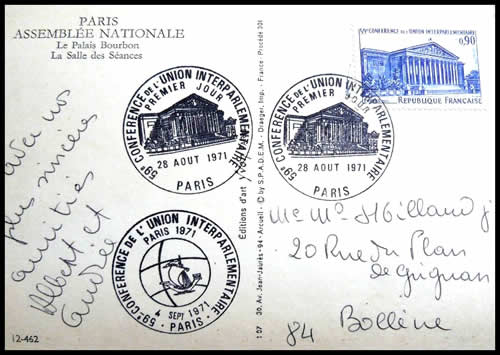 PARIS
ASSEMBLÉE NATIONALE
Le Palais Bourbon
La Salle des Séances
59e CONFERENCE DE L'UNION INTERPARLEMENTAIRE
0,90
REPUBLIQUE FRANÇAISE
59e CONFERENCE DE L'UNION INTERPARLEMENTAIRE
PREMIER JOUR
28 AOUT 1971
PARIS
59e CONFERENCE DE L'UNION INTERPARLEMENTAIRE
PREMIER JOUR
28 AOUT 1971
PARIS
avec nos
plus sincères
amitiés
Albert et
Andrée
59e CONFERENCE DE L'UNION INTERPARLEMENTAIRE
PARIS 1971
4 SEPT 1971
PARIS
12-462
107 30, Av. Jean-Jaurès-94-Arcueil - © by S.P.A.D.E.M. - Draeger, Imp. - France - Procédé 301
Editions d'art
20 Rue du Plan
de Grignan
84 Bollène